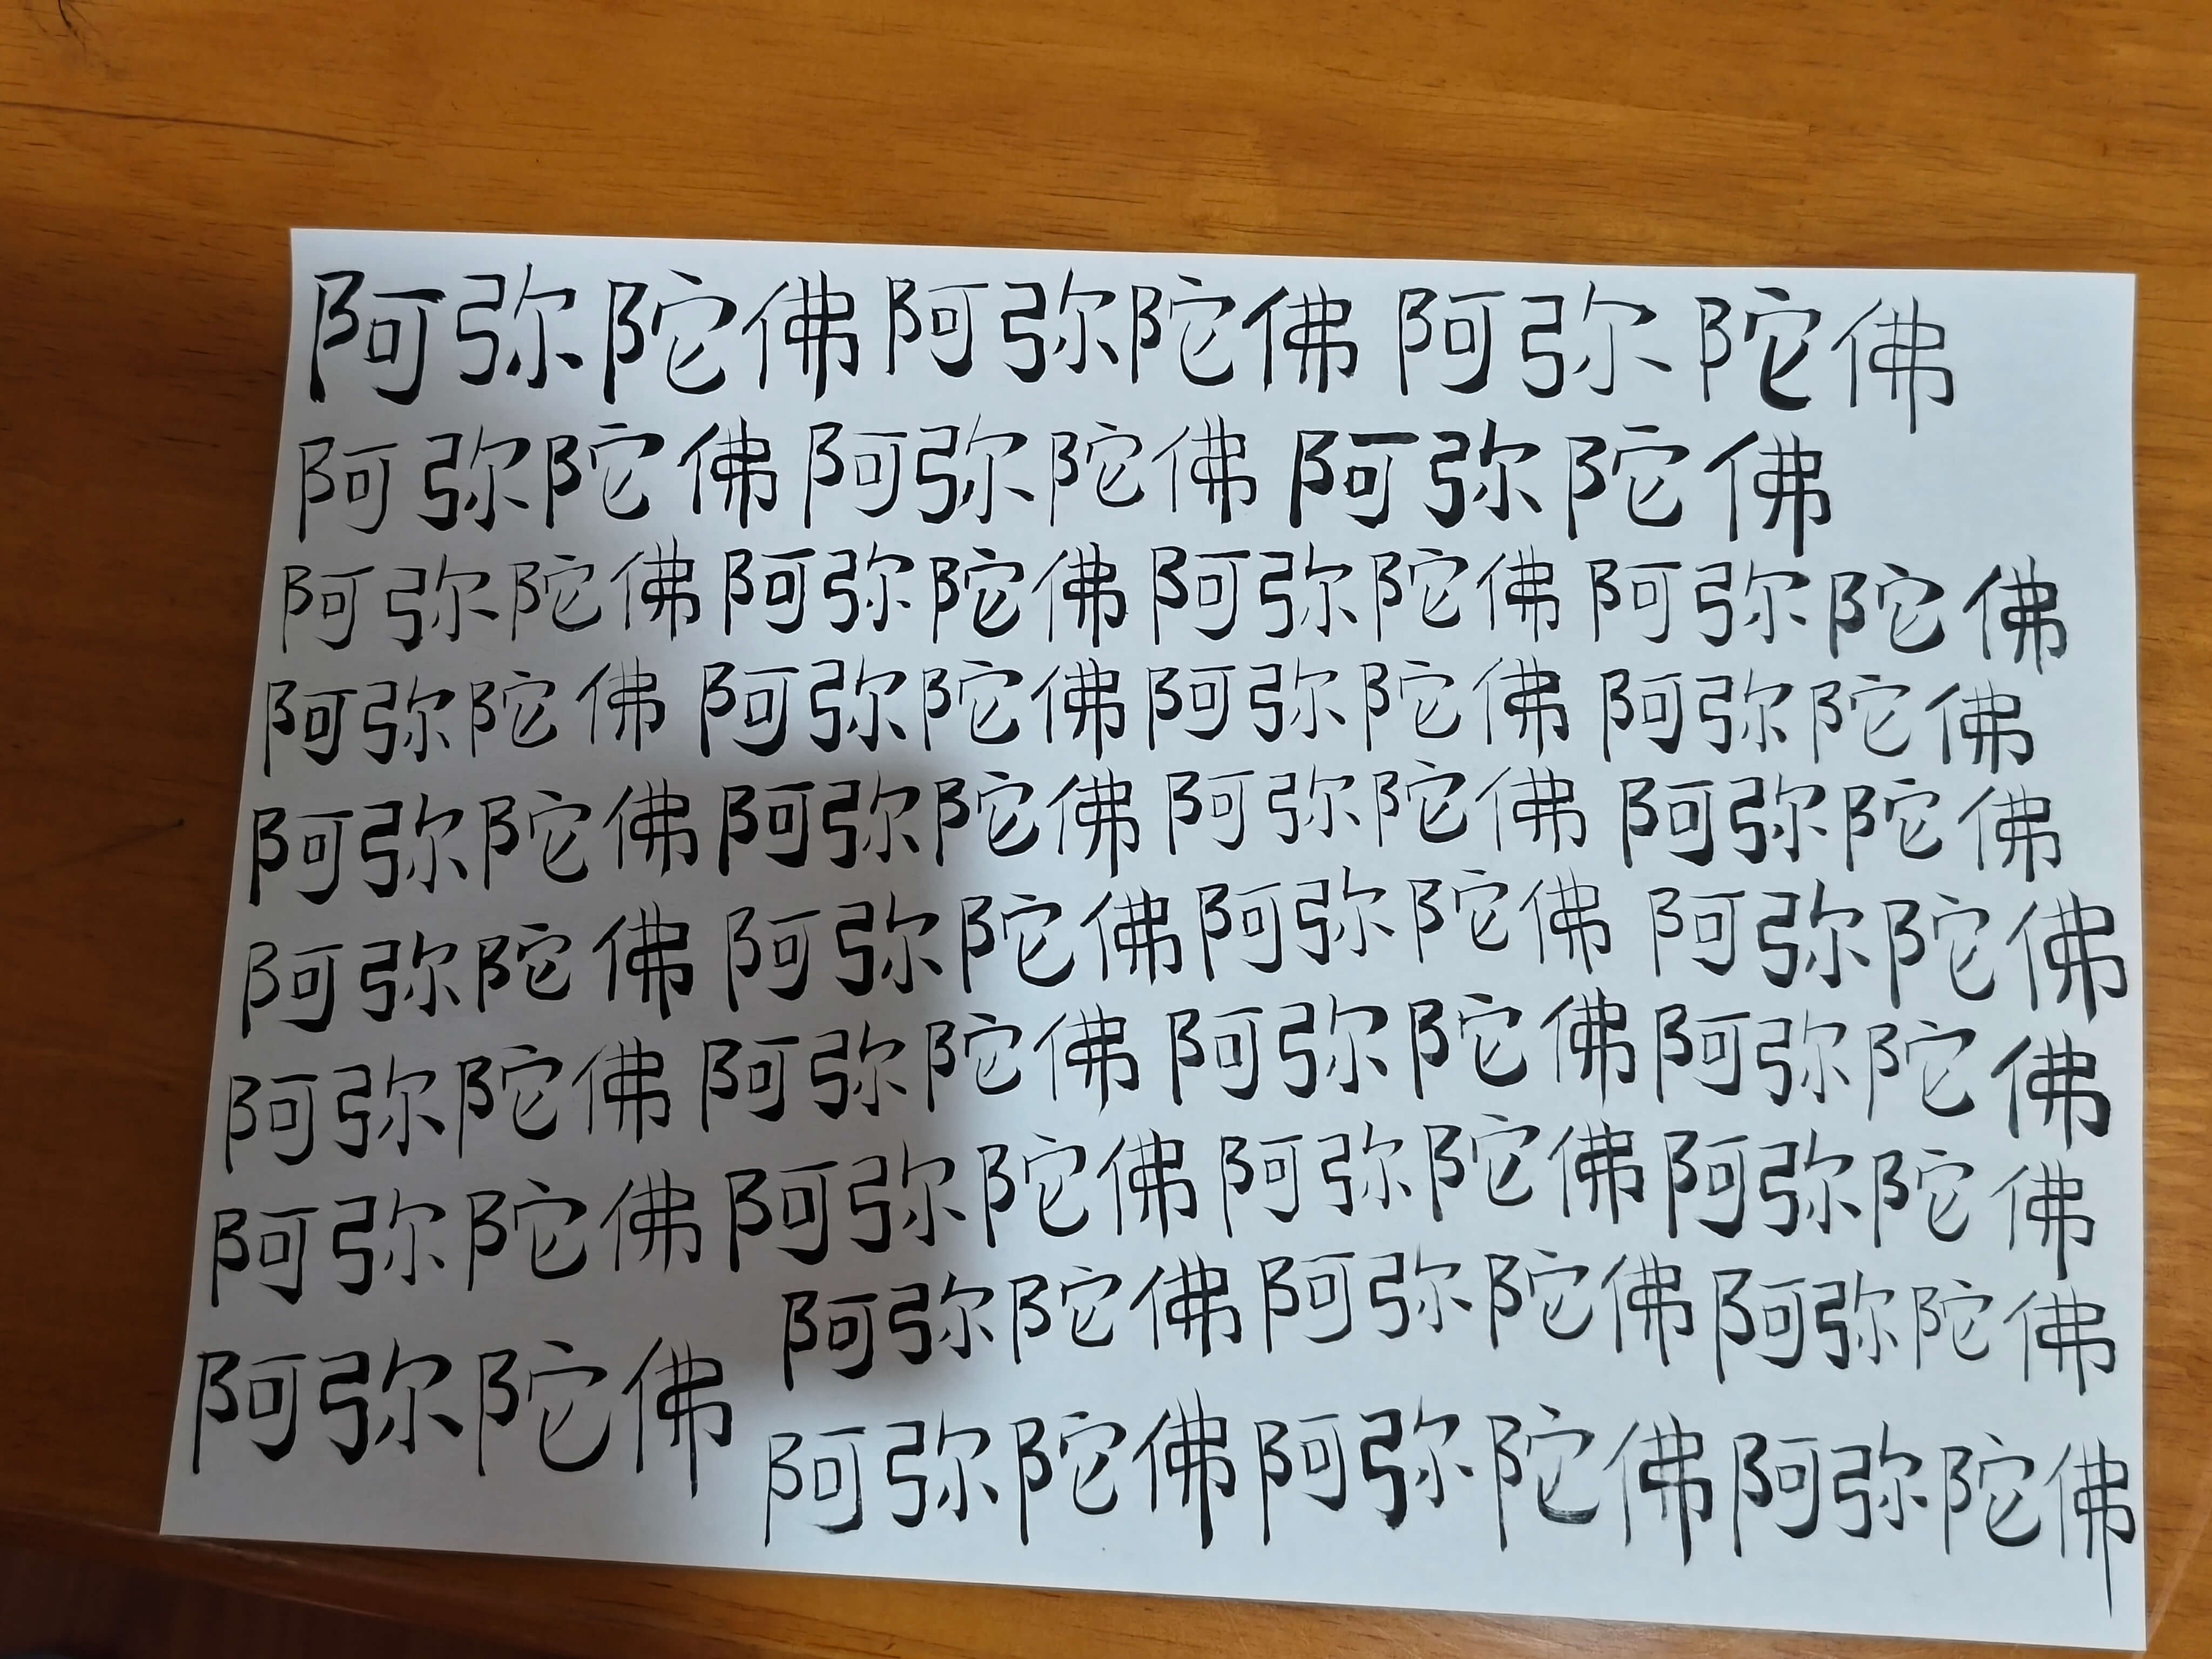 阿弥陀佛阿弥陀佛阿弥陀佛
阿弥陀佛阿弥陀佛阿弥陀佛
阿弥陀佛阿弥陀佛阿弥陀佛阿弥陀佛
阿弥陀佛阿弥陀佛阿弥陀佛阿弥陀佛
阿弥陀佛阿弥陀佛阿弥陀佛阿弥陀佛
阿弥陀佛阿弥陀佛阿弥陀佛阿弥陀佛
阿弥陀佛阿弥陀佛阿弥陀佛阿弥陀佛
阿弥陀佛阿弥陀佛阿弥陀佛阿弥陀佛
阿弥陀佛阿弥陀佛阿弥陀佛阿弥陀佛
阿弥陀佛阿弥陀佛阿弥陀佛